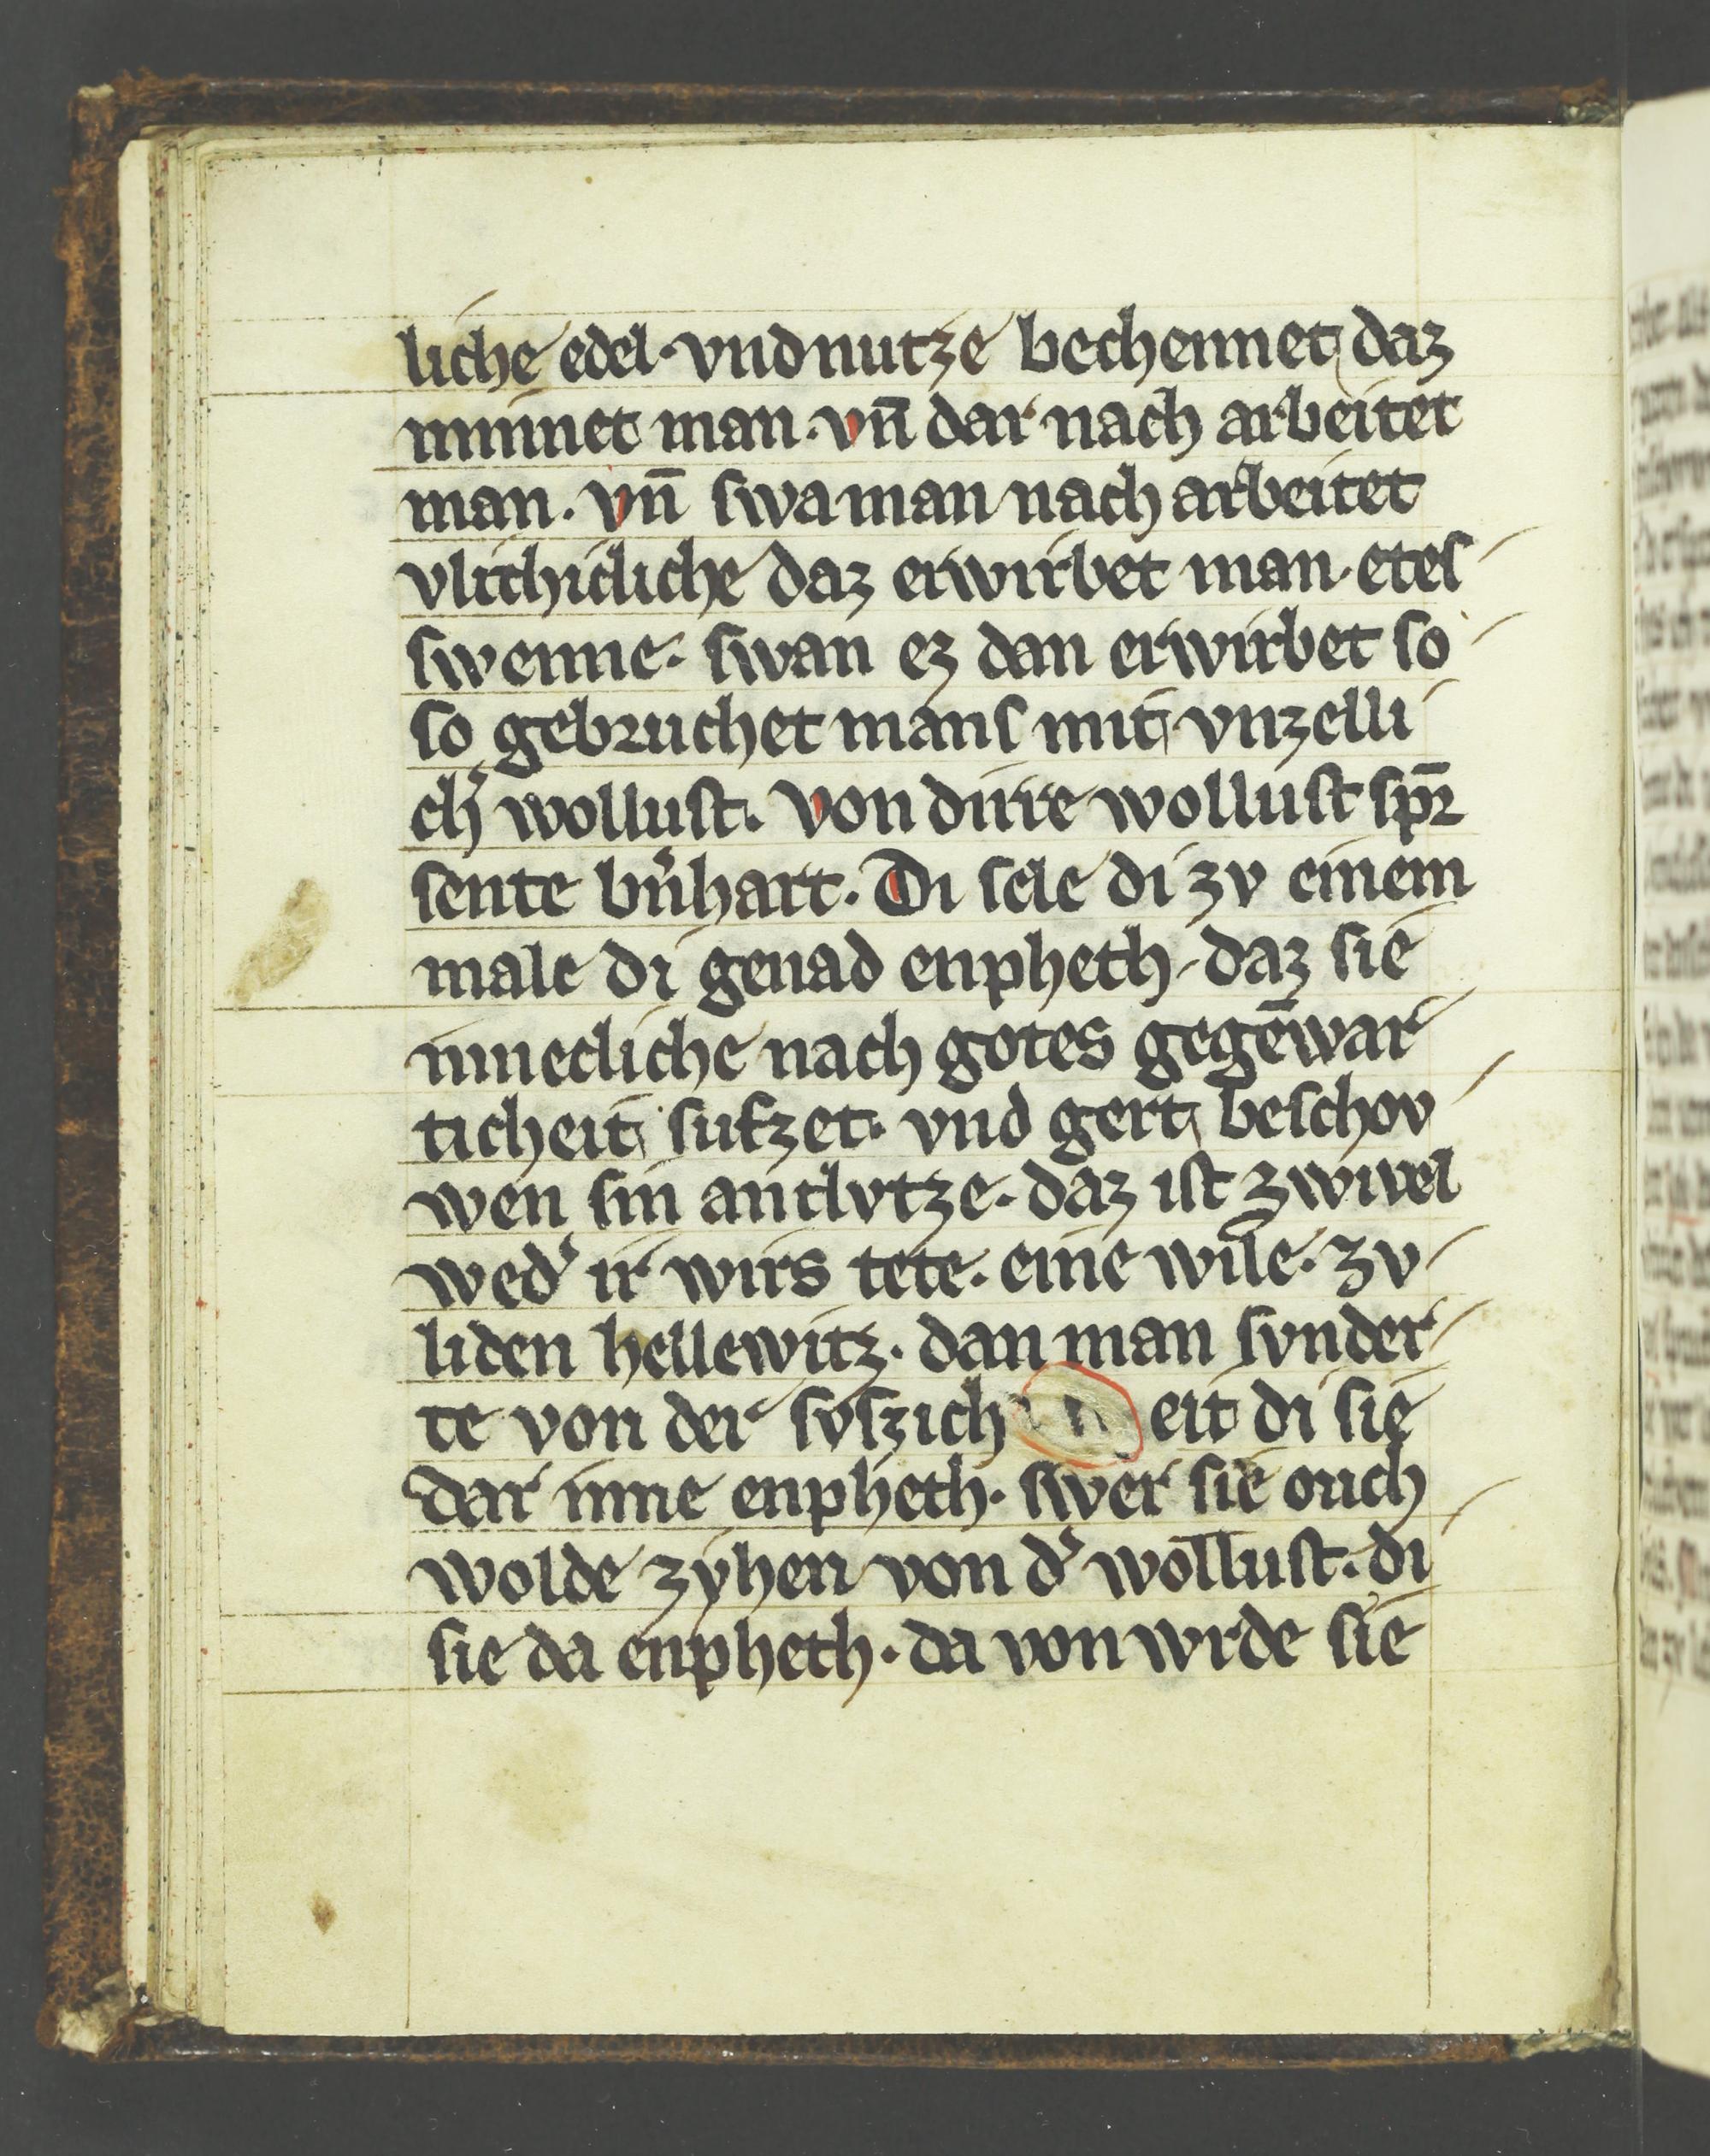 liche edel · vnd nutze bechennet daz
minnet man · vn̄ dar nach arbeitet
man · vn̄ swa man nach arbeitet
vlithicliche daz erwirbet man · etes
swenne · swan ez dan erwirbet so
so gebruchet mans mit vnzelli
ch͛ wollust · Von dirre wollust spr̄
sente bn͛hart · Di sele di zv einem
male di genad enpheth · daz sie
innecliche nach gotes gegēwar
ticheit sufzet · vnd gert beschov
wen sin antlvtze · daz ist zwivel
wed͛ ir wirs tete · eine wile · zv
liden hellewitz · dan man svnder
te von der svszich eit di sie
dar inne enpheth · swer sie ouch
wolde zyhen von d͛ wollust · di
sie da enpheth · da von wrde sie